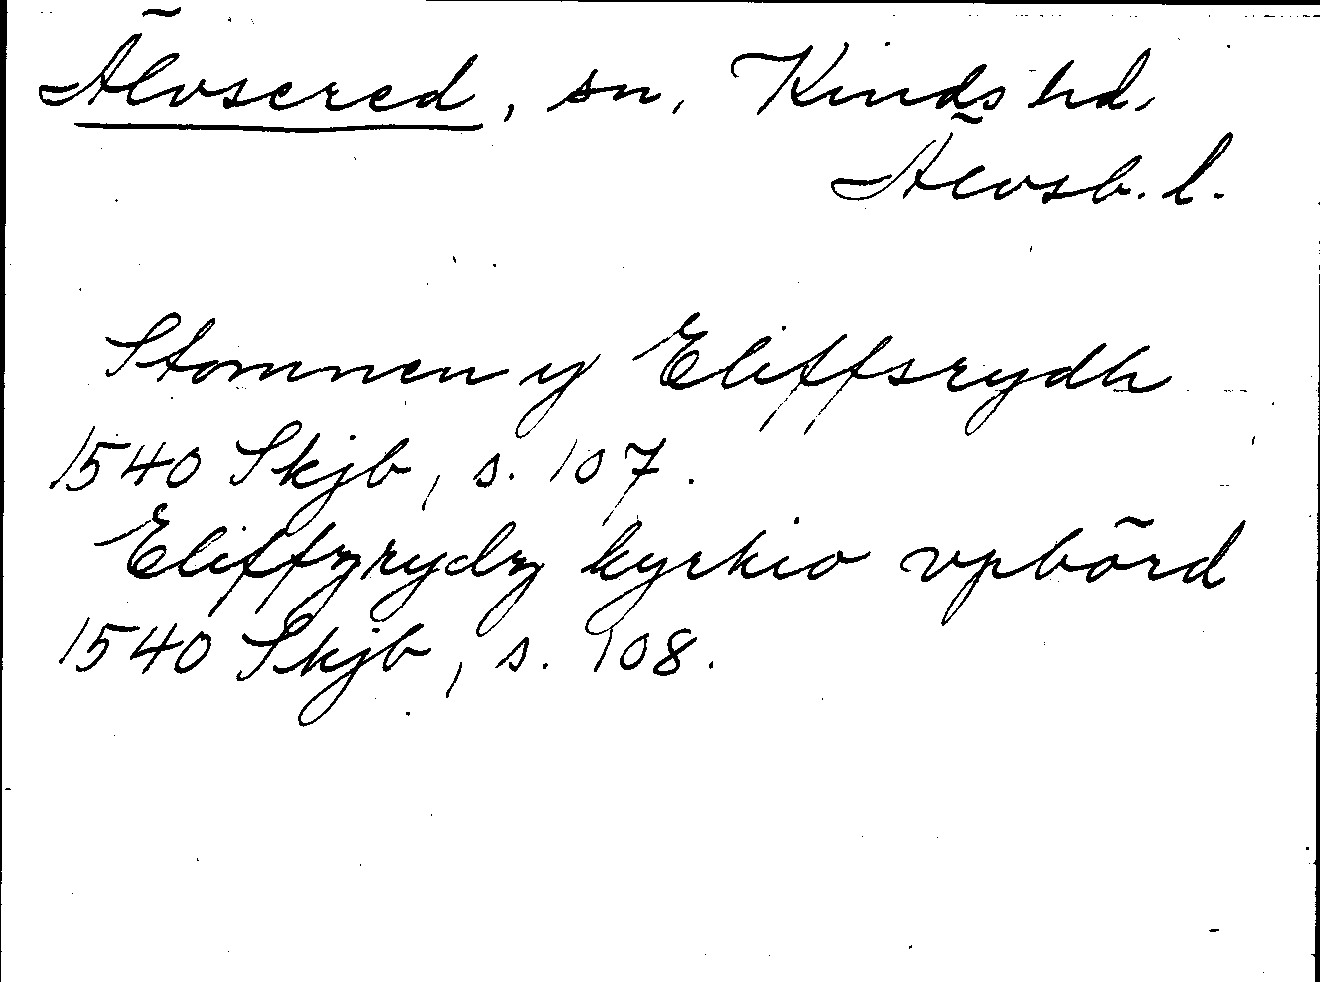 Älvsered, sn, Kinds hd,
Älvsb. l.
Stommen y Eliffsrydh
1540 Skjb, s. 107.
Eliffzrydz kyrkio vpbörd
1540 Skjb, s. 108.